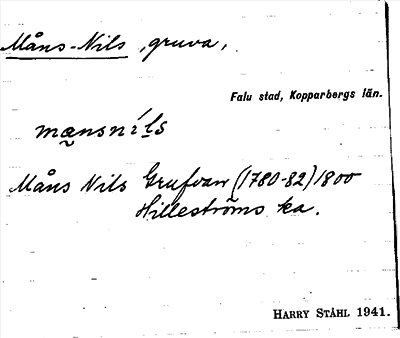 Måns-Nils, gruva,
Falu stad, Kopparbergs län.
mænsníls
Måns Nils Grufvan (1780-82) 1800
Hilleströms ka.
HARRY STÅHL 1941.